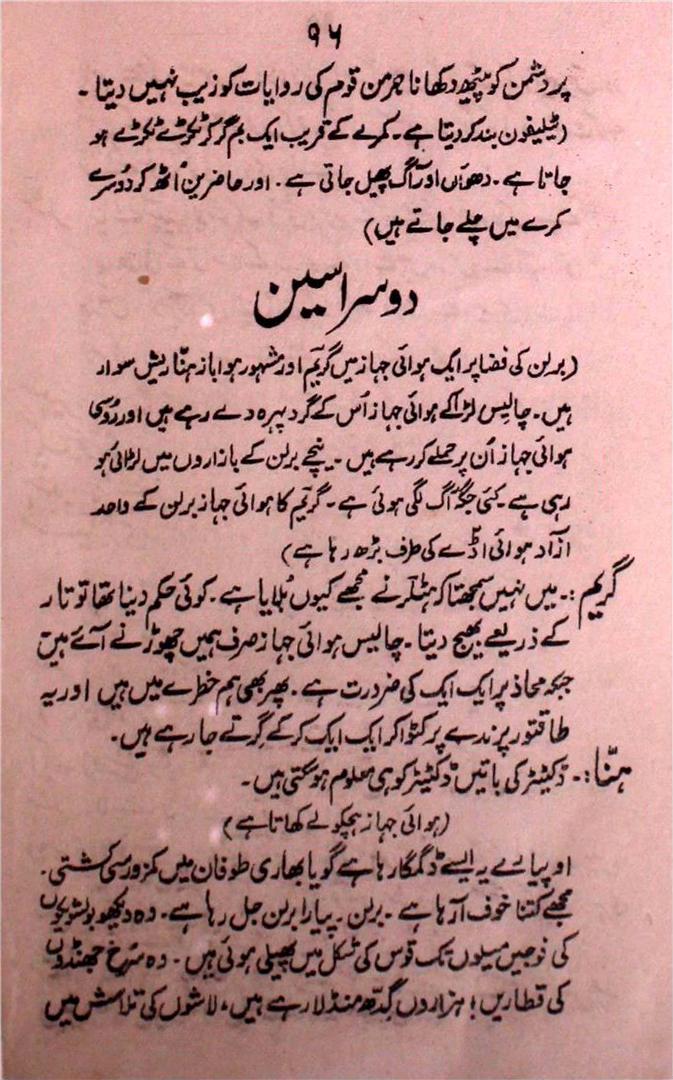 ۹۶
پر دشمن کو پیٹھ دکھانا جرمن قوم کی روایات کو زیب نہیں دیتا ۔
(ٹیلیفون بند کر دیتا ہے ۔ کمرے کے قریب ایک بم گر کر ٹکڑے ٹکڑے ہو
جاتا ہے ۔ دھواں اور آگ پھیل جاتی ہے ۔ اور حاضرین اُٹھ کر دوسرے
کمرے میں چلے جاتے ہیں)
دوسرا سین
(برلن کی فضا پر ایک ہوائی جہاز میں گریم اور مشہور ہوا باز ہنّا ریش سوار
ہیں ۔ چالیس لڑاکے ہوائی جہاز اُس کے گرد پہرہ دے رہے ہیں اور رُوسی
ہوائی جہاز اُن پر حملے کر رہے ہیں ۔ نیچے برلن کے بازاروں میں لڑائی ہو
رہی ہے ۔ کئی جگہ آگ لگی ہوئی ہے ۔ گریم کا ہوائی جہاز برلن کے واحد
آزاد ہوائی اڈے کی طرف بڑھ رہا ہے)
گریم :۔ میں نہیں سمجھتا کہ ہٹلر نے مجھے کیوں بُلایا ہے ۔ کوئی حکم دینا تھا تو تار
کے ذریعے بھیج دیتا ۔ چالیس ہوائی جہاز صرف ہمیں چھوڑنے آئے ہیں
جبکہ محاذ پر ایک ایک کی ضرورت ہے ۔ پھر بھی ہم خطرے میں ہیں اور یہ
طاقتور پرندے پر کٹوا کر ایک ایک کر کے گرتے جا رہے ہیں ۔
ہنّا :۔ ڈکٹیٹر کی باتیں ڈکٹیٹر کو ہی معلوم ہو سکتی ہیں ۔
(ہوائی جہاز ہچکولے کھاتا ہے)
او پیارے یہ ایسے ڈگمگا رہا ہے گویا بھاری طوفان میں کمزور سی کشتی ۔
مجھے کتنا خوف آ رہا ہے ۔ برلن ۔ پیارا برلن جل رہا ہے ۔ وہ دیکھو بولشویکوں
کی فوجیں میلوں تک قوس کی شکل میں پھیلی ہوئی ہیں ۔ وہ سُرخ جھنڈوں
کی قطاریں ! ہزاروں گِدھ منڈلا رہے ہیں ، لاشوں کی تلاش میں